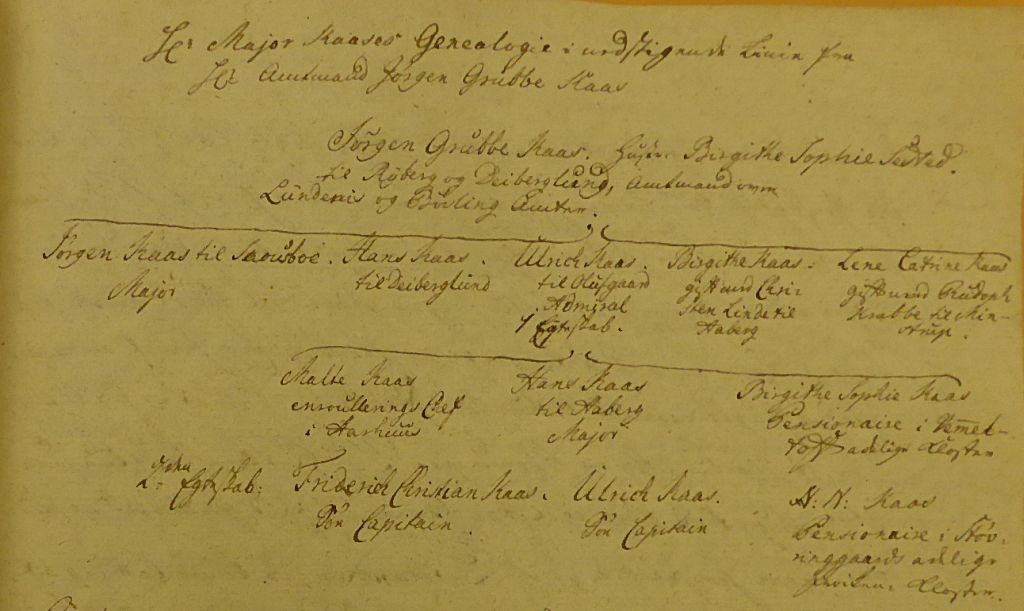 Hr Major Kaases Genealogie i nedstigende Linie fra
Hr Amtmand Jørgen Grubbe Kaas
Jørgen Grubbe Kaas. Hustr: Birgithe Sophie Sested.
til Ryberg og Deiberglund, Amtmand over
Lundenis og Bövling Amter.
Jörgen Kaas til
Major
Hans Kaas.
til Deiberglund
Ulrich Kaas.
til Olufgaard
Admiral
1 Egteskab.
Birgithe Kaas:
gift med Chri-
sten Linde til
Aaberg
Lene Catrine Kaas
gift med Rudoph
Krabbe til Min-
strup.
Malte Kaas
enroullerings Chef
i Aarhuus
Hans Kaas
til Aaberg
Major
Birgithe Sophie Kaas
Pensionaire i Vemet-
tofft adelige Closter
2det Egteskab:
Friderich Christian Kaas.
Søn Capitain
Ulrich Kaas.
Søn Capitain
N: N: Kaas
Pensionaire i Støv-
ringgaards adelige
Closter.